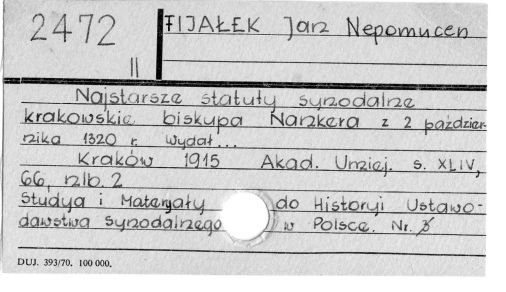 2472
II
FIJAŁEK Jan Nepomucen
Najstarsze statuty synodalne
krakowskie biskupa Nankera z 2 paździer-
nika 1320 r. wydał...
Kraków 1915 Akad. Umiej. s. XLIV,
66, nlb. 2
Studya i Materyały do Historyi Ustawo-
dawstwa synodalnego w Polsce. Nr. 3
DUJ. 393/70. 100 000.